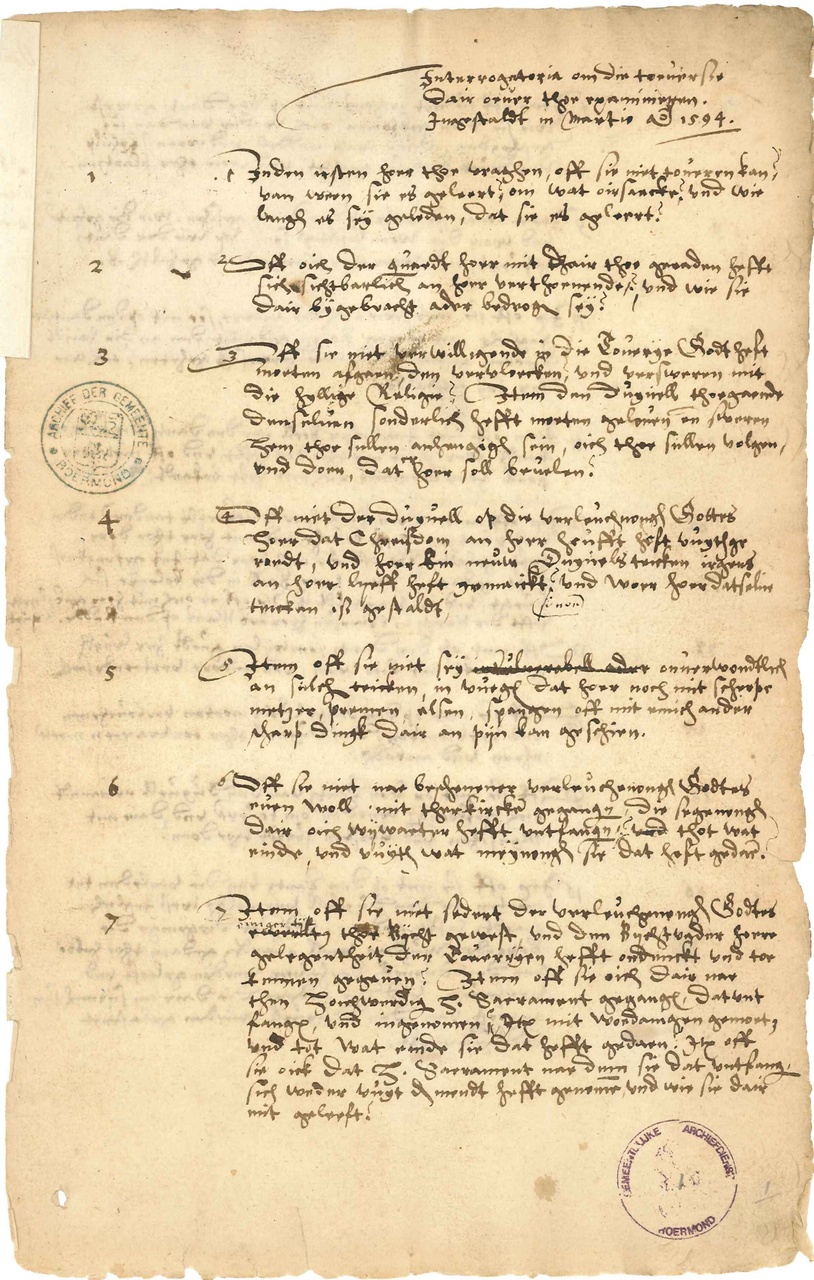 Interrogatoria om die toeuersie
dair oeuer thoe examinieren.
Ingestaldt in Martio ao 1594.
1 1 Inden irsten hoer thoe vraghen, oft sie niet toueren kan,
van wem sie es geleert, om wat oirsaecke, und wie
langh es sey geleden, dat sie es geleert?
2 2 Off oich der quaedt hoer mit thair thoe geraden hefft
sich sichtbarlich an hoer verthoenende, und wie sie
dair bygebracht ader bedrogen sey?
3 3 Oft sie niet verwilligende in die Touerye Godt heft
moeten afgaen, den vervloecken, und versweren mit
die hyllige Religie? Item den duyuell thoegaende
denseluen sonderlich hefft moeten geloeuen en sweren
hem thoe sullen anhengigh sein, oich thoe sullen volgen,
und doen, dat hoer soll beuelen?
4 4 Off niet der duyuell op die verleuchnongh Gottes
hoer dat Chrisdom an hoer heufft heft vuythge
, und hoer ein neuw Duyuels teicken irgens
an hoer lyeff heft gemaickt, und woer hoer datselue
teicken is gestaldt
5 5 Item oft sie niet sey onuerwondtlich
an sulch teicken, in vuegh dat hoer noch mit scherpe
metzer, premen, elsen, spangen oft mit einich ander
scharp dingk dair an pijn kan geschien.
6 6 Off sie niet nae beschener verleuchenongh Godtes
euen woll mit ther kircken gegangen, die segenongh
dair oich wywaeter hefft untfangen, und thot wat
einde, und vuyth wat meynongh sie dat heft gedaen?
7 7 Item oft sie niet sedert der verleuchgenongh Godtes
thoe Bycht gewest, und den Bychtvader hoere
gelegentheit der Toueryen hefft ondeckt und toe
kennen gegeuen? Item oft sie oich dair nae
then hoichwerdig H. Sacrament gegangh, dat unt
fangen, und ingenomen, Ite mit woedanigen gemoet,
und tot wat einde sie dat hefft gedaen? Ite oft
sie oick dat H. Sacrament nae dem sie dat untfang.
sich weder vuyt den mondt hefft genomen, und wie sie dair
mit geleeft?
ARCHIEF DER GEMEENTE ROERMOND
GEMEENTELIJKE ARCHIEFDIENST ROERMOND